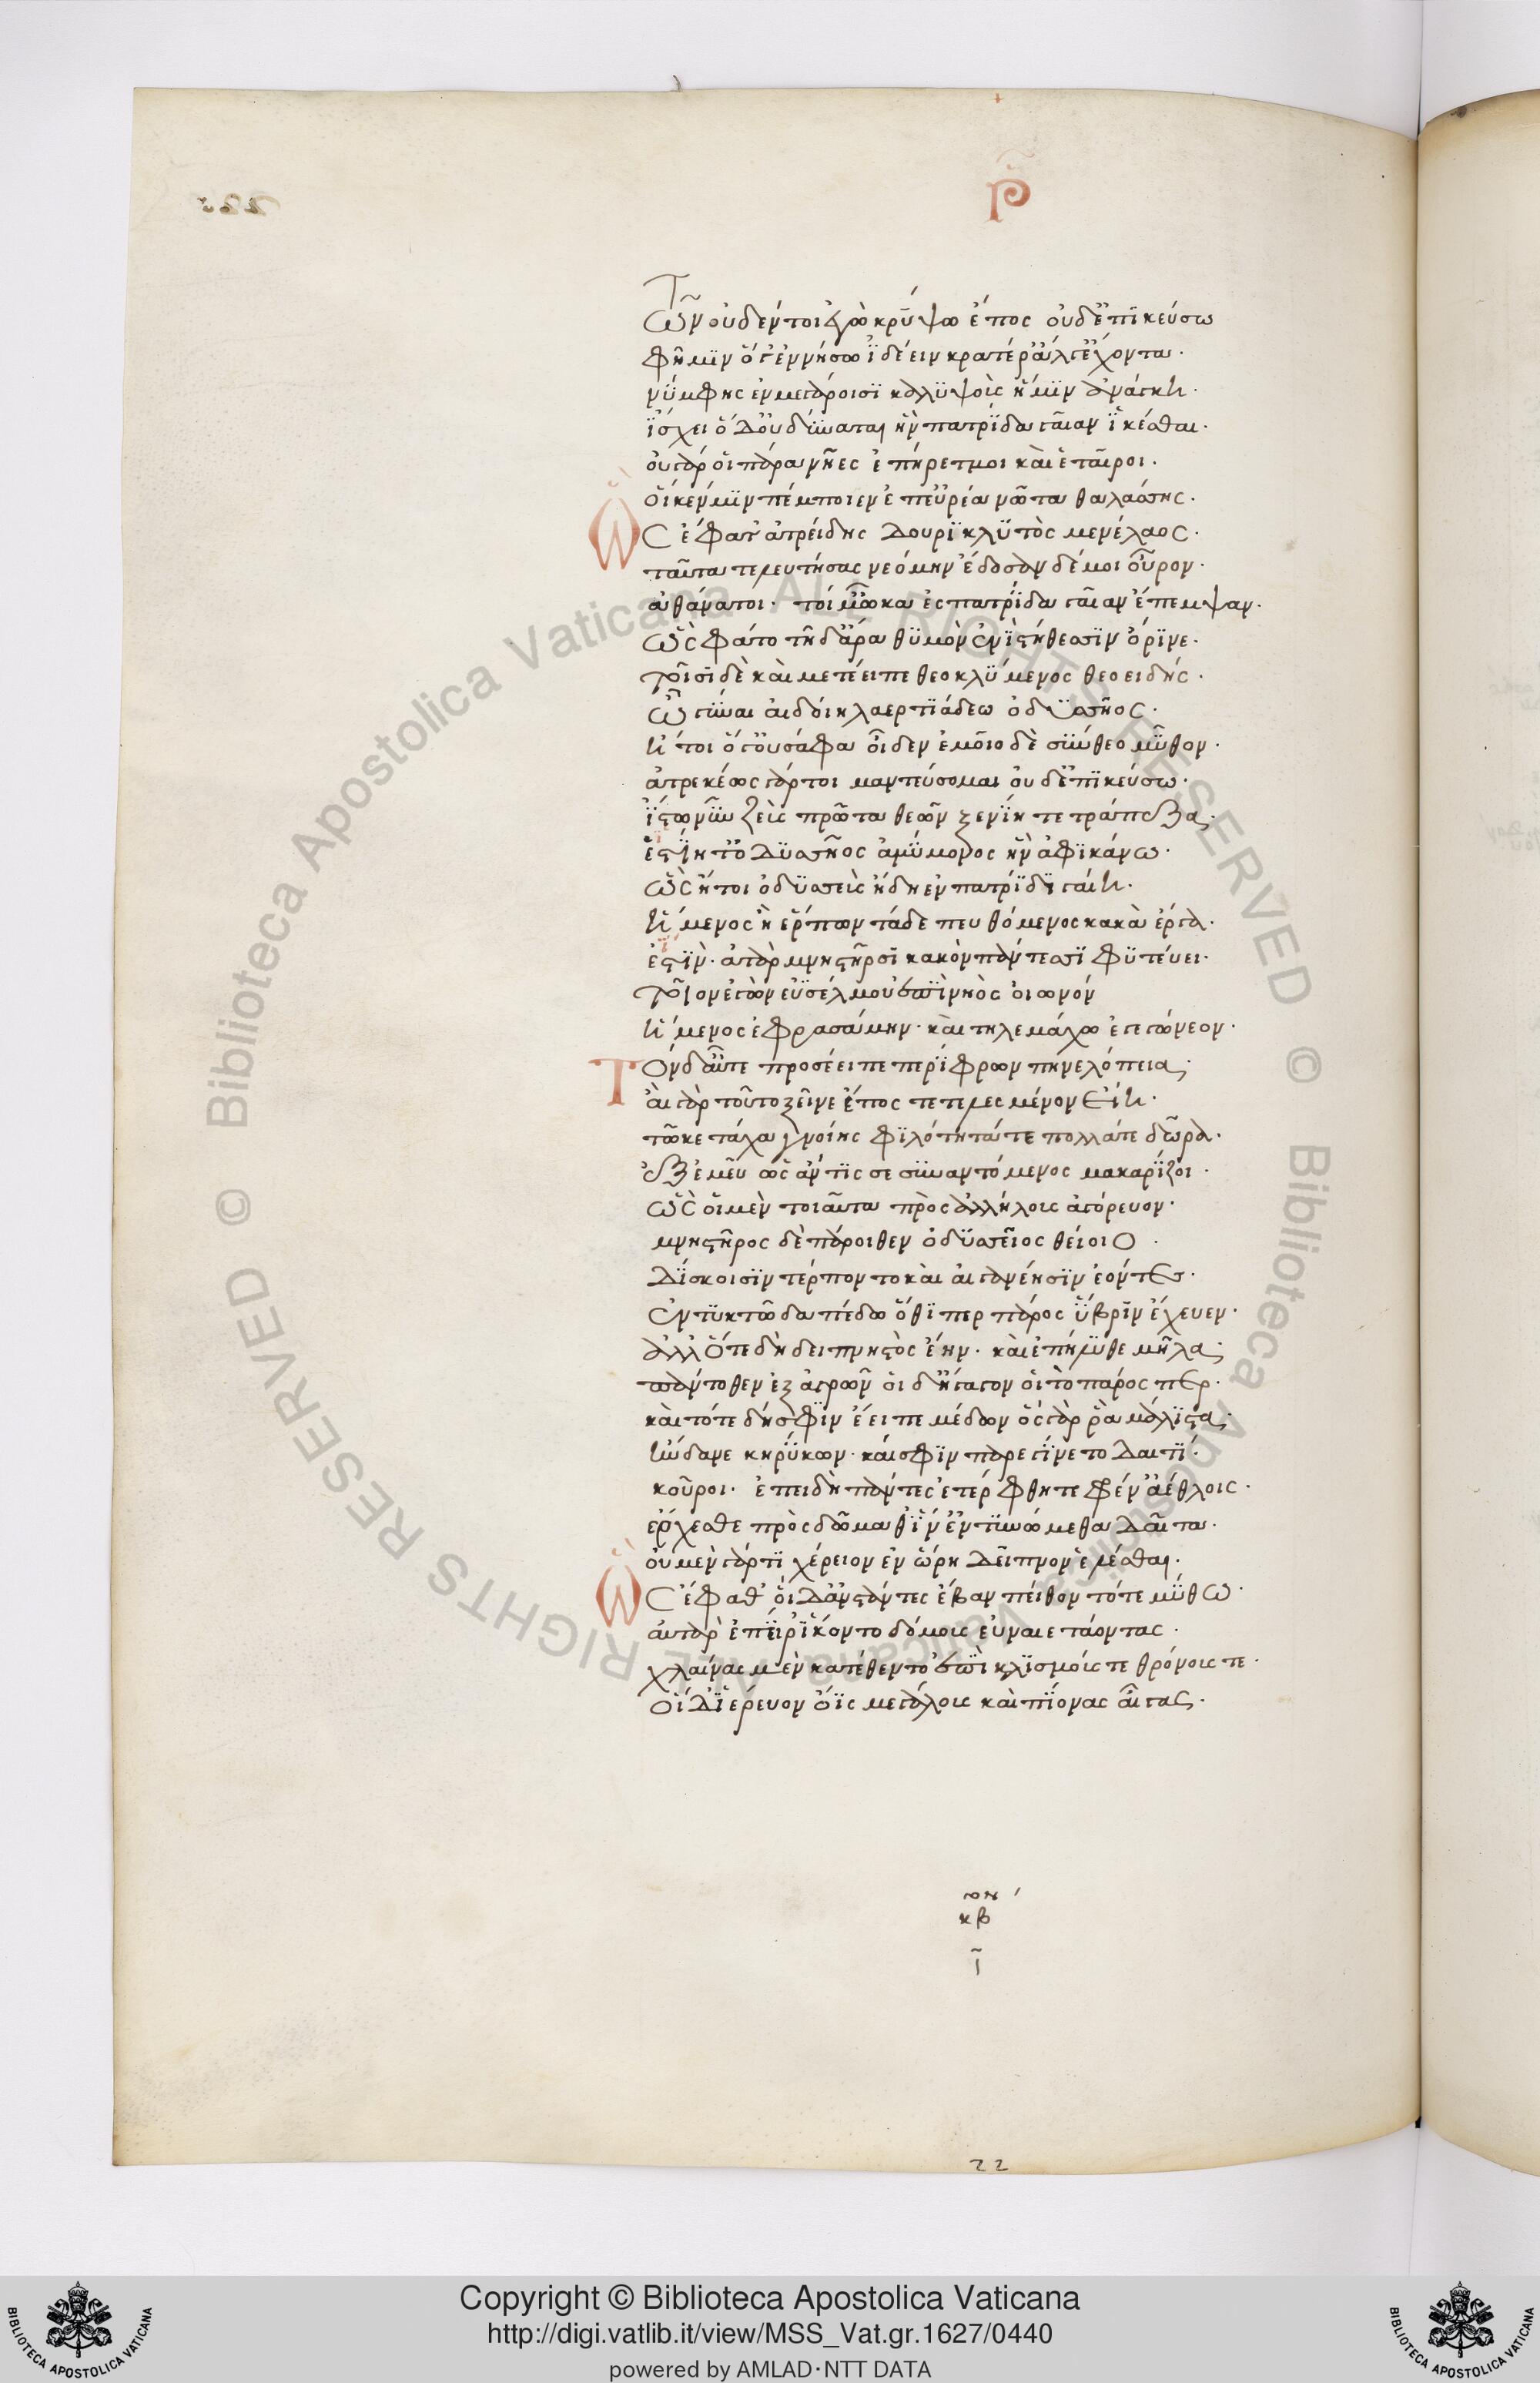 ρ
Τῶν οὐδέν τοι ἐγὼ κρύψω ἔπος οὐδ' ἐπικεύσω
φῆ μιν ὅγ' ἐν νήσω ἰδέειν κρατέρ' ἄλγε' ἔχοντα·
νύμφης ἐν μεγάροισι καλυψοῦς ἥ μιν ἀνάγκη·
ἴσχει ὁ δ' οὐ δύναται ἣν πατρίδα γαῖαν ἱκέσθαι·
οὐ γὰρ οἱ πάρα νῆες ἐπήρετμοι καὶ ἑταῖροι·
οἵ κέν μιν πέμποιεν ἐπ' εὐρέα νῶτα θαλάσσης·
Ὣς ἔφατ' ἀτρείδης δουρικλυτὸς μενέλαος·
ταῦτα τελευτήσας νεόμην ἔδοσαν δέ μοι οὖρον·
ἀθάνατοι· τοί μ' ὦκα ἐς πατρίδα γαῖαν ἔπεμψαν·
ὣς φάτο τῇ δ' ἄρα θυμὸν ἐνὶ στήθεσσιν ὄρινε·
τοῖσι δὲ καὶ μετέειπε θεοκλύμενος θεοειδής·
ὦ γύναι αἰδοίη λαερτιάδεω ὀδυσσῆος·
ἤτοι ὅγ' οὐ σάφα οἶδεν ἐμοῖο δὲ σύνθεο μῦθον·
ἀτρεκέως γάρ τοι μαντεύσομαι οὐδ' ἐπικεύσω·
ἴστω νῦν ζεὺς πρῶτα θεῶν ξενίη τε τράπεζα·
ἑστίη τ' ὀδυσσῆος ἀμύμονος ἣν ἀφικάνω·
ὡς ἤτοι ὀδυσσεὺς ἤδη ἐν πατρίδι γαίη·
ἥμενος ἢ ἕρπων τάδε πευθόμενος κακὰ ἔργα·
ἐστίν· ἀτὰρ μνηστῆρσι κακὸν πάντεσσι φυτεύει·
τοῖον ἐγὼν ἐϋσσέλμου ἐπὶ νηὸς οἰωνόν
ἥμενος ἐφρασάμην· καὶ τηλεμάχω ἐγεγώνεον·
Τὸν δ' αὖτε προσέειπε περίφρων πηνελόπεια·
αἲ γὰρ τοῦτο ξεῖνε ἔπος τετελεσμένον εἴη·
τῶ κε τάχα γνοίης φιλότητά τε πολλά τε δῶρα·
ἐξ ἐμεῦ ὡς ἄν τίς σε συναντόμενος μακαρίζοι·
ὣς οἱ μὲν τοιαῦτα πρὸς ἀλλήλους ἀγόρευον·
μνηστῆρος δὲ πάροιθεν ὀδυσσῆος θείοιο·
δίσκοισιν τέρποντο καὶ αἰγανέησιν ἱέντες·
ἐν τυκτῶ δαπέδω ὅθι περ πάρος ὕβριν ἔχευεν·
ἀλλ' ὅτε δὴ δειπνηστὸς ἔην· καὶ ἐπήλυθε μῆλα·
πάντοθεν ἐξ ἀγρῶν οἱ δ' ἤγαγον οἳ τὸ πάρος περ·
καὶ τότε δή σφιν ἔειπε μέδων ὃς γάρ ῥα μάλιστα·
ἥνδανε κηρύκων· καί σφιν παρεγίνετο δαιτί·
κοῦροι· ἐπειδὴ πάντες ἐτέρφθητε φρέν' ἀέθλοις·
ἔρχεσθε πρὸς δώμαθ' ἵν' ἐντυνώμεθα δαῖτα·
οὐ μὲν γάρ τι χέρειον ἐν ὥρη δεῖπνον ἑλέσθαι·
Ὣς ἔφαθ' οἱ δ' ἀνστάντες ἔβαν πείθοντό τε μύθω·
αὐτὰρ ἐπεί ῥ' ἵκοντο δόμους εὐναιετάοντας·
χλαίνας μὲν κατέθεντο ἐπὶ κλισμούς τε θρόνους τε·
οἱ δ' ἱέρευον ὄϊς μεγάλους καὶ πίονας αἶγας·
κβ
22
Copyright © Biblioteca Apostolica Vaticana
http://digi.vatlib.it/view/MSS_Vat.gr.1627/0440
powered by AMLAD·NTT DATA
BIBLIOTECA APOSTOLICA VATICANA
BIBLIOTECA APOSTOLICA VATICANA
© Biblioteca Apostolica Vaticana ALL RIGHTS RESERVED © Biblioteca Apostolica Vaticana ALL RIGHTS RESERVED